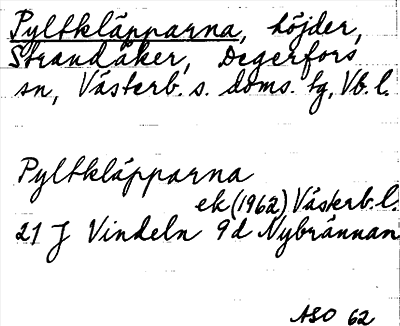 Pyltkläpparna, höjder,
Strandåker, Degerfors
sn, Västerb. s. doms. tg, Vb. l.
Pyltkläpparna
ek (1962) Västerb. l.
21 J Vindeln 9d Nybrännan
ASO 62